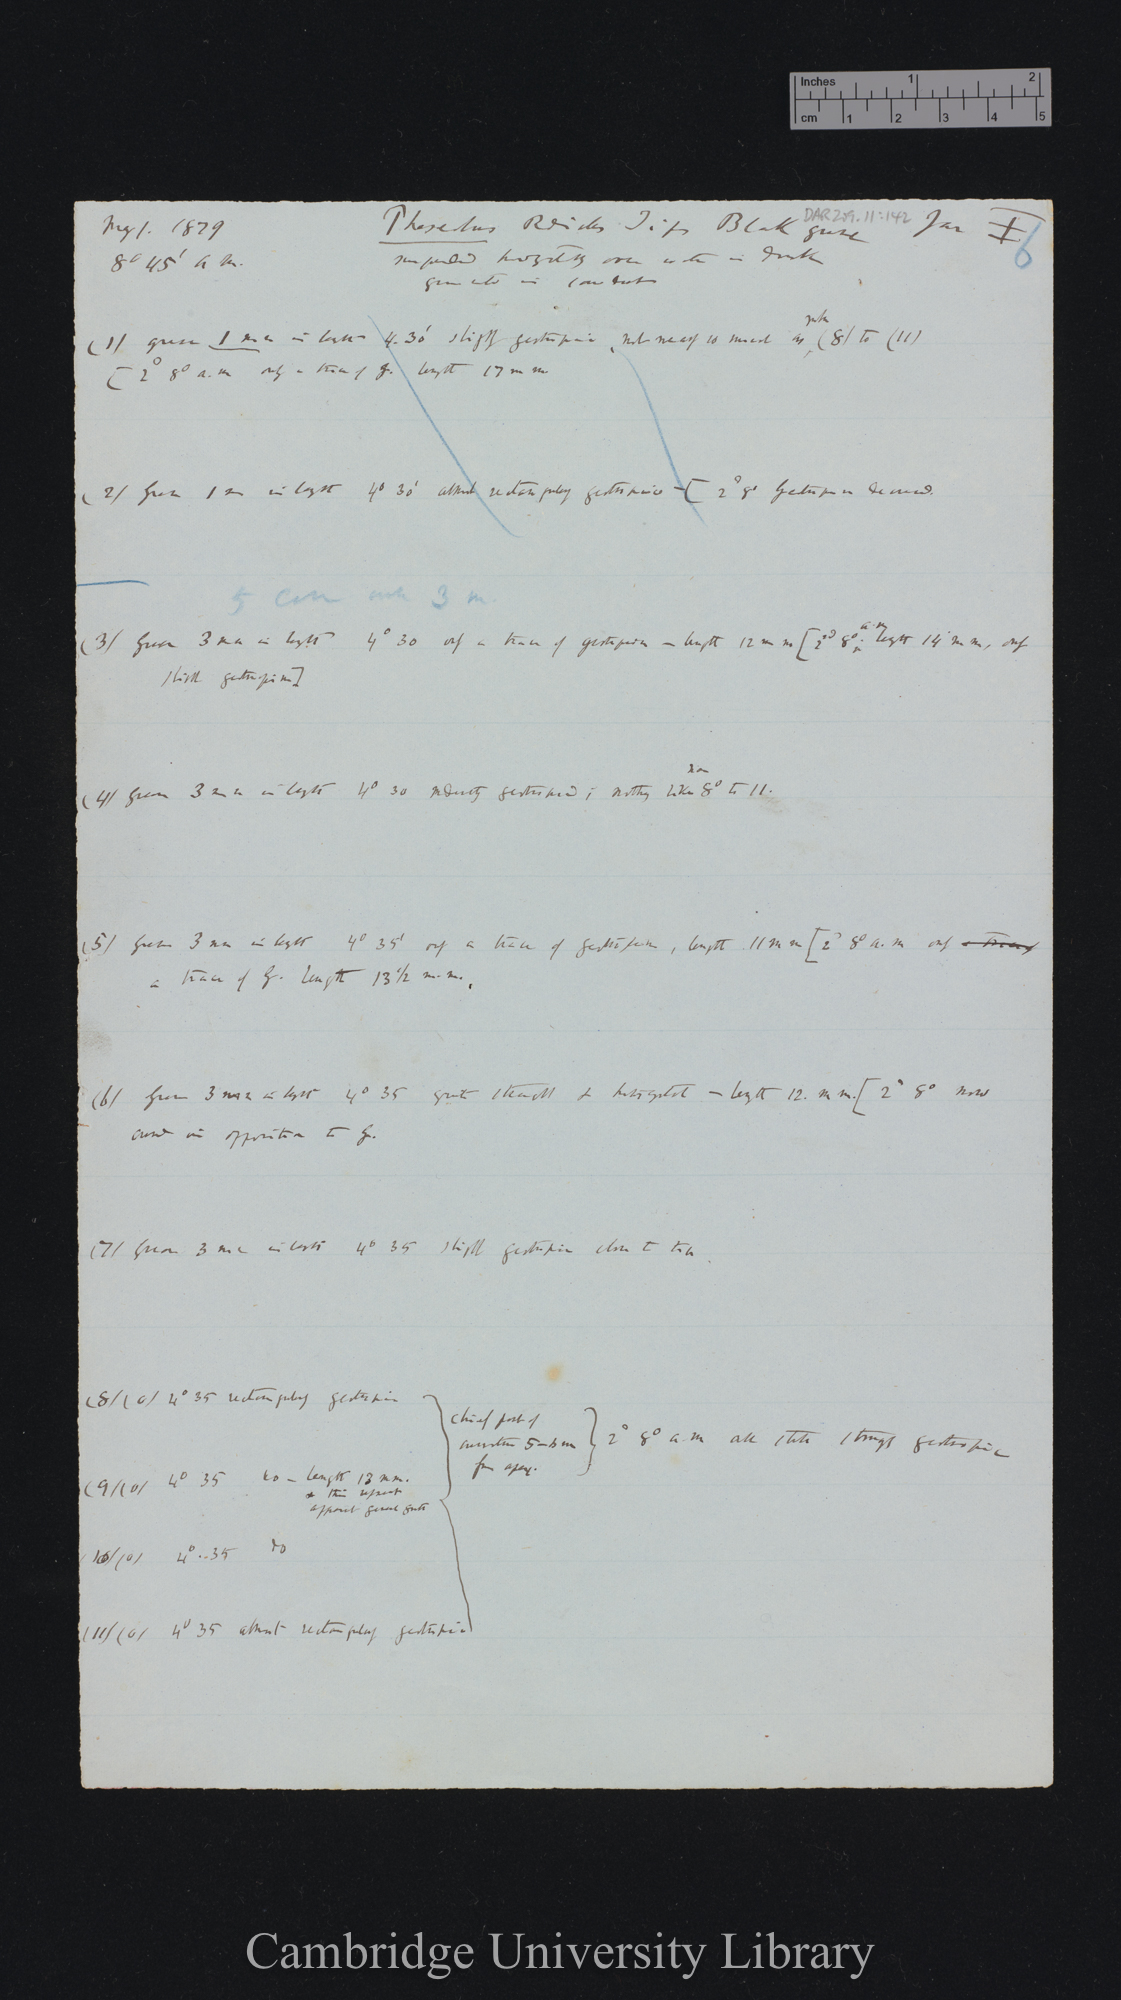 Inches 1 2
cm 1 2 3 4 5
DAR 209.11:142
May 1. 1879 Phaseolus Radicles Tips Black grease Jar II 6
8° 45' a.m. suspended horizontally over water in dark
(1) grease 1 mm in length 4.30' slightly geotropic, not nearly so much as (8) to (11)
[2° 8° a.m only a trace of G. length 17 mm
(2) Grease 1 mm in length 4° 30' almost rectangularly geotropic – [2° 8° Geotropism decreased.
5 cases with 3 m.
(3) Grease 3 mm in length 4° 30 only a trace of geotropism – length 12 mm [2° 8° a.m length 14 mm, only
slight geotropism]
(4) Grease 3 mm in length 4° 30 moderately geotropic; nothing like 8° to 11.
(5) Grease 3 mm in length 4° 35' only a trace of geotropism, length 11 mm [2° 8° a.m only
a trace of G. length 13 1/2 m.m.
(6) Grease 3 mm in length 4° 35 quite straight & horizontal – length 12. mm. [2° 8° now
curved in opposition to G.
(7) Grease 3 mm in length 4° 35 slight geotropism close to
(8) (0) 4° 35 rectangularly geotropic
chief part of
curvature 5-6 mm
from apex.
2° 8° a.m all strongly geotropic
(9) (0) 4° 35 do – length 13 mm.
& this represents
apparent general growth
(10) (0) 4°..35 do
(11) (0) 4° 35 almost rectangularly geotropic
Cambridge University Library